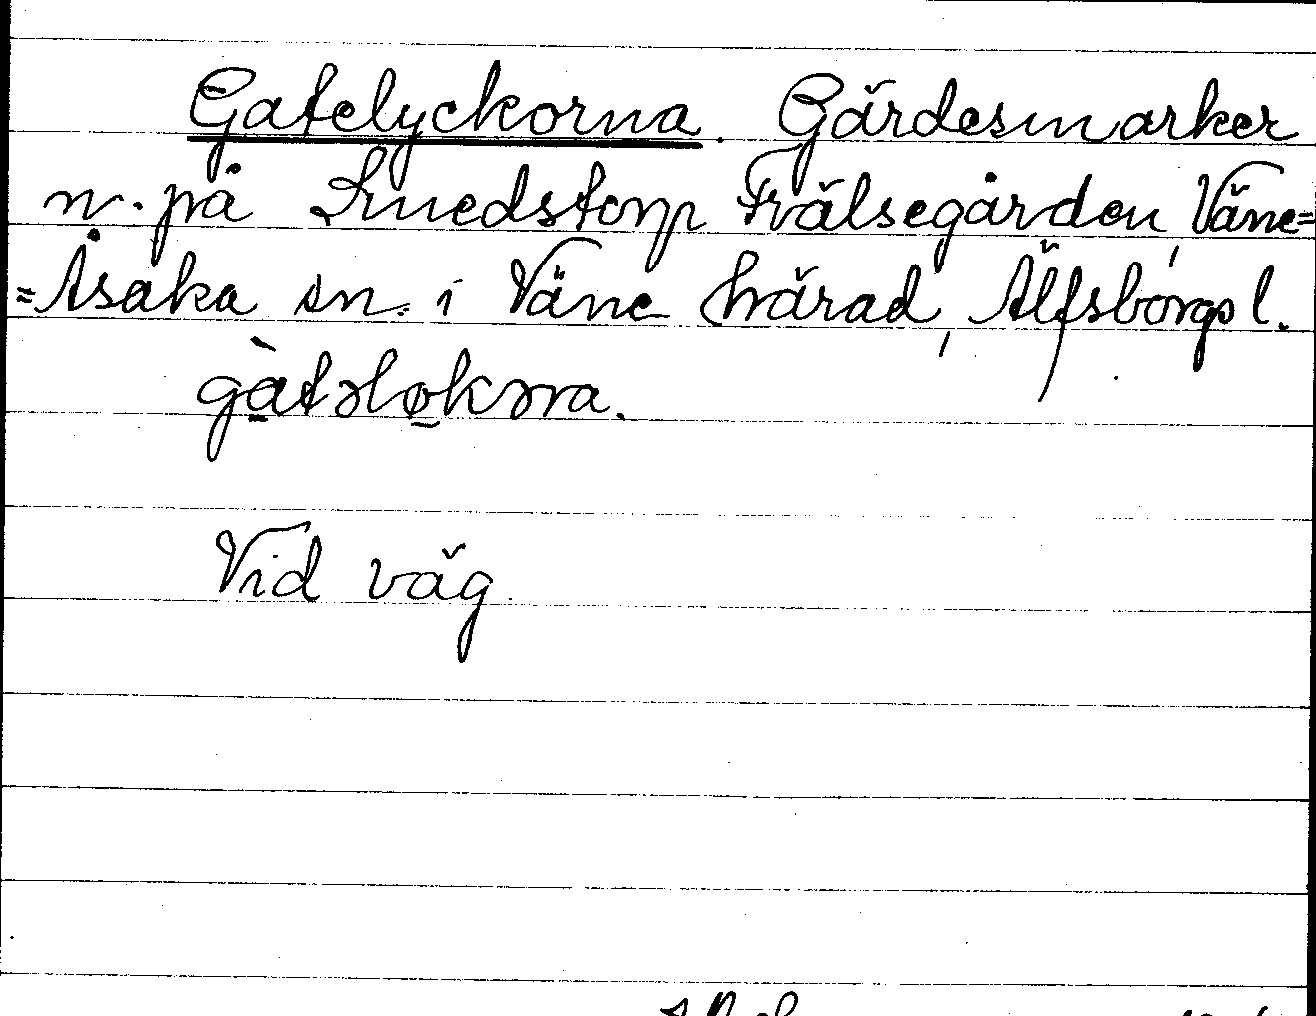 Gatelyckorna. Gärdesmarker
n. på Smedstorp Frälsegården, Väne=
=Åsaka sn. i Väne härad, Älfsborgs l.
gàtəlo̠kəra.
Vid väg.